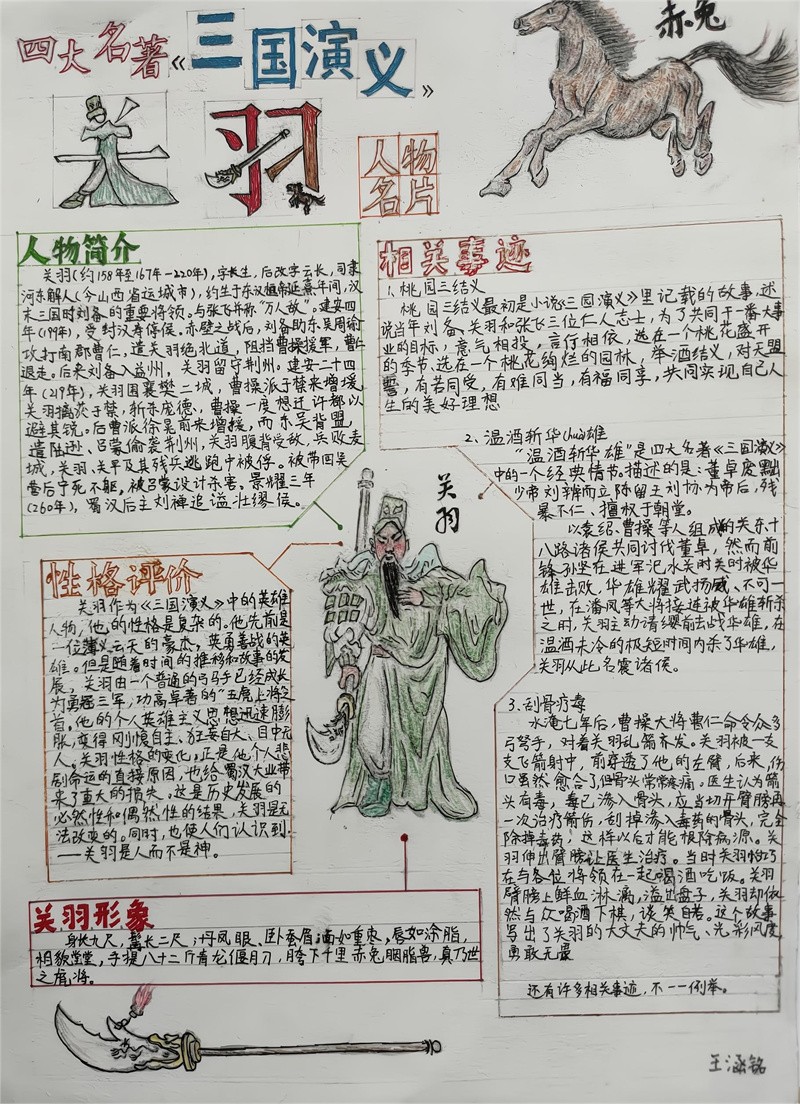 四大名著《三国演义》
赤兔
关羽
人物
名片
人物简介
关羽(约158年至167年—220年),字长生,后改字云长,司隶
河东解人(今山西省运城市),约生于东汉桓帝延熹年间,汉
末三国时刘备的重要将领。与张飞并称"万人敌"。建安四
年(199年),受封汉寿亭侯。赤壁之战后,刘备助东吴周瑜
攻打南郡曹仁,遣关羽绝北道,阻挡曹操援军,曹仁
退走。后来刘备入益州,关羽留守荆州。建安二十四
年(219年),关羽围襄樊二城,曹操派于禁来增援,
关羽擒获于禁,斩杀庞德,曹操一度想迁许都以
避其锐。后曹派徐晃前来增援,而东吴背盟,
遣陆逊、吕蒙偷袭荆州,关羽腹背受敌,兵败麦
城,关羽、关平及其残兵逃跑中被俘。被带回吴
营后宁死不躯,被吕蒙设计杀害。景耀三年
(260年),蜀汉后主刘禅追谥壮缪侯。
相关事迹
1、桃园三结义
桃园三结义最初是小说《三国演义》里记载的故事,述
说当年刘备、关羽和张飞三位仁人志士,为了共同干一番大事
业的目标,意气相投,言行相依,选在一个桃花盛开
的季节、选在一个桃花绚烂的园林,举酒结义,对天盟
誓,有苦同受,有难同当,有福同享,共同实现自己人
生的美好理想
2、温酒斩华(huà)雄
"温酒斩华雄"是四大名著《三国演义》
中的一个经典情节。描述的是:董卓废黜
少帝刘辩而立陈留王刘协为帝后,残
暴不仁、擅权于朝堂。
以袁绍、曹操等人组成的关东十
八路诸侯共同讨伐董卓,然而前
锋孙坚在进军汜水关时关时被华
雄击败,华雄耀武扬威、不可一
世,在潘凤等大将接连被华雄斩杀
之时,关羽主动请缨前去战华雄,在
温酒未冷的极短时间内杀了华雄,
关羽从此名震诸侯。
3、刮骨疗毒
水淹七军后,曹操大将曹仁命令众多
弓弩手,对着关羽乱箭齐发。关羽被一支
支飞箭射中,箭穿透了他的左臂,后来,伤
口虽然愈合了,但骨头常常疼痛。医生认为箭
头有毒,毒已渗入骨头,应当切开臂膀再
一次治疗箭伤,刮掉渗入毒药的骨头,完全
除掉毒药,这样以后才能根除病源。关
羽伸出臂膀让医生治疗。当时关羽恰巧
在与各位将领在一起喝酒吃饭。关羽
臂膀上鲜血淋漓,溢出盘子,关羽却依
然与众喝酒下棋,谈笑自若。这个故事
写出了关羽的大丈夫的帅气、光彩风度
勇敢无畏
还有许多相关事迹,不一一例举。
关羽
性格评价
关羽作为《三国演义》中的英雄
人物,他的性格是复杂的。他先前是
一位薄义云天的豪杰,英勇善战的英
雄。但是随着时间的推移和故事的发
展,关羽由一个普通的弓马手已经成长
为勇冠三军,功高卓著的"五虎上将之
首。他的个人英雄主义思想迅速膨
胀,变得刚愎自主、狂妄自大、目中无
人。关羽性格的变化,正是他个人悲
剧命运的直接原因,也给蜀汉大业带
来了重大的损失。这是历史发展的
必然性和偶然性的结果,关羽是无
法改变的。同时,也使人们认识到
——关羽是人而不是神。
关羽形象
身长九尺,髯长二尺,丹凤眼、卧蚕眉,面如重枣,唇如涂脂,
相貌堂堂,手提八十二斤青龙偃月刀,胯下千里赤兔胭脂兽,真乃世
之虎将。
王涵铭